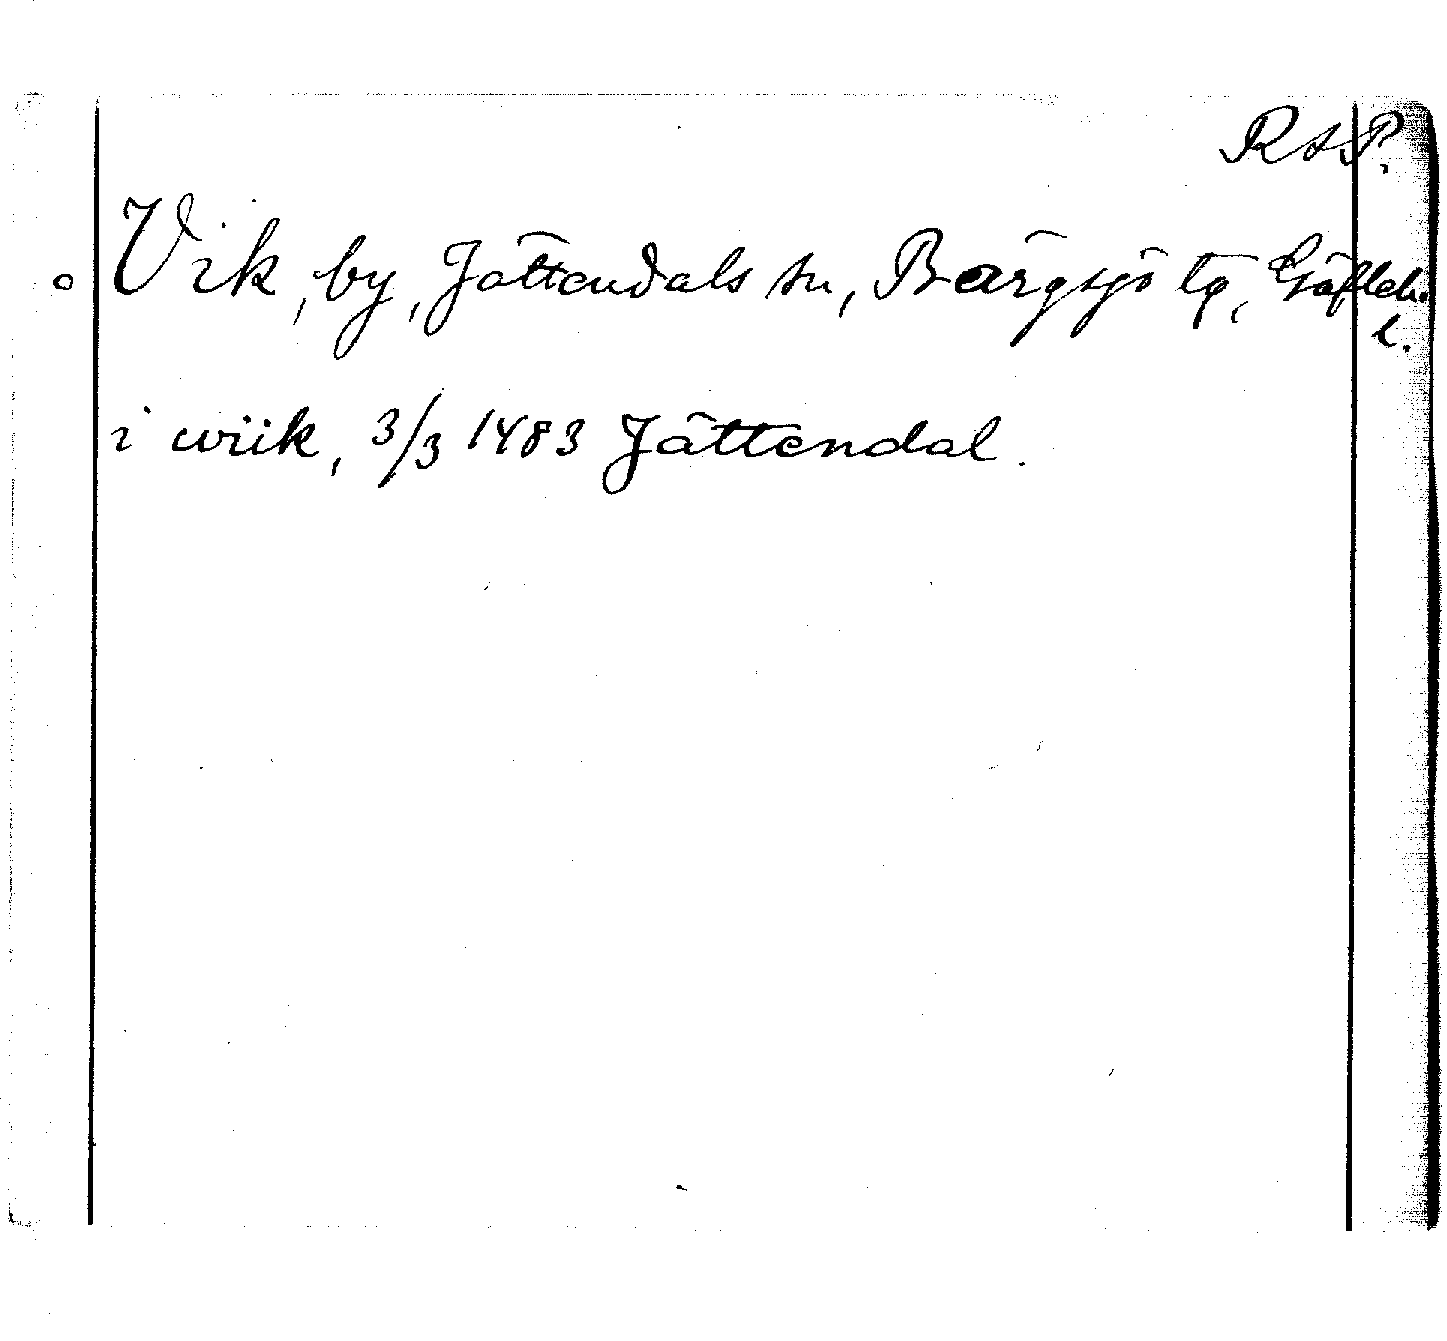 RAP.
Vik, by, Jättendals sn, Bärgsjö tg, Gäfleb.
l.
i wiik, 3/3 1483 Jättendal.